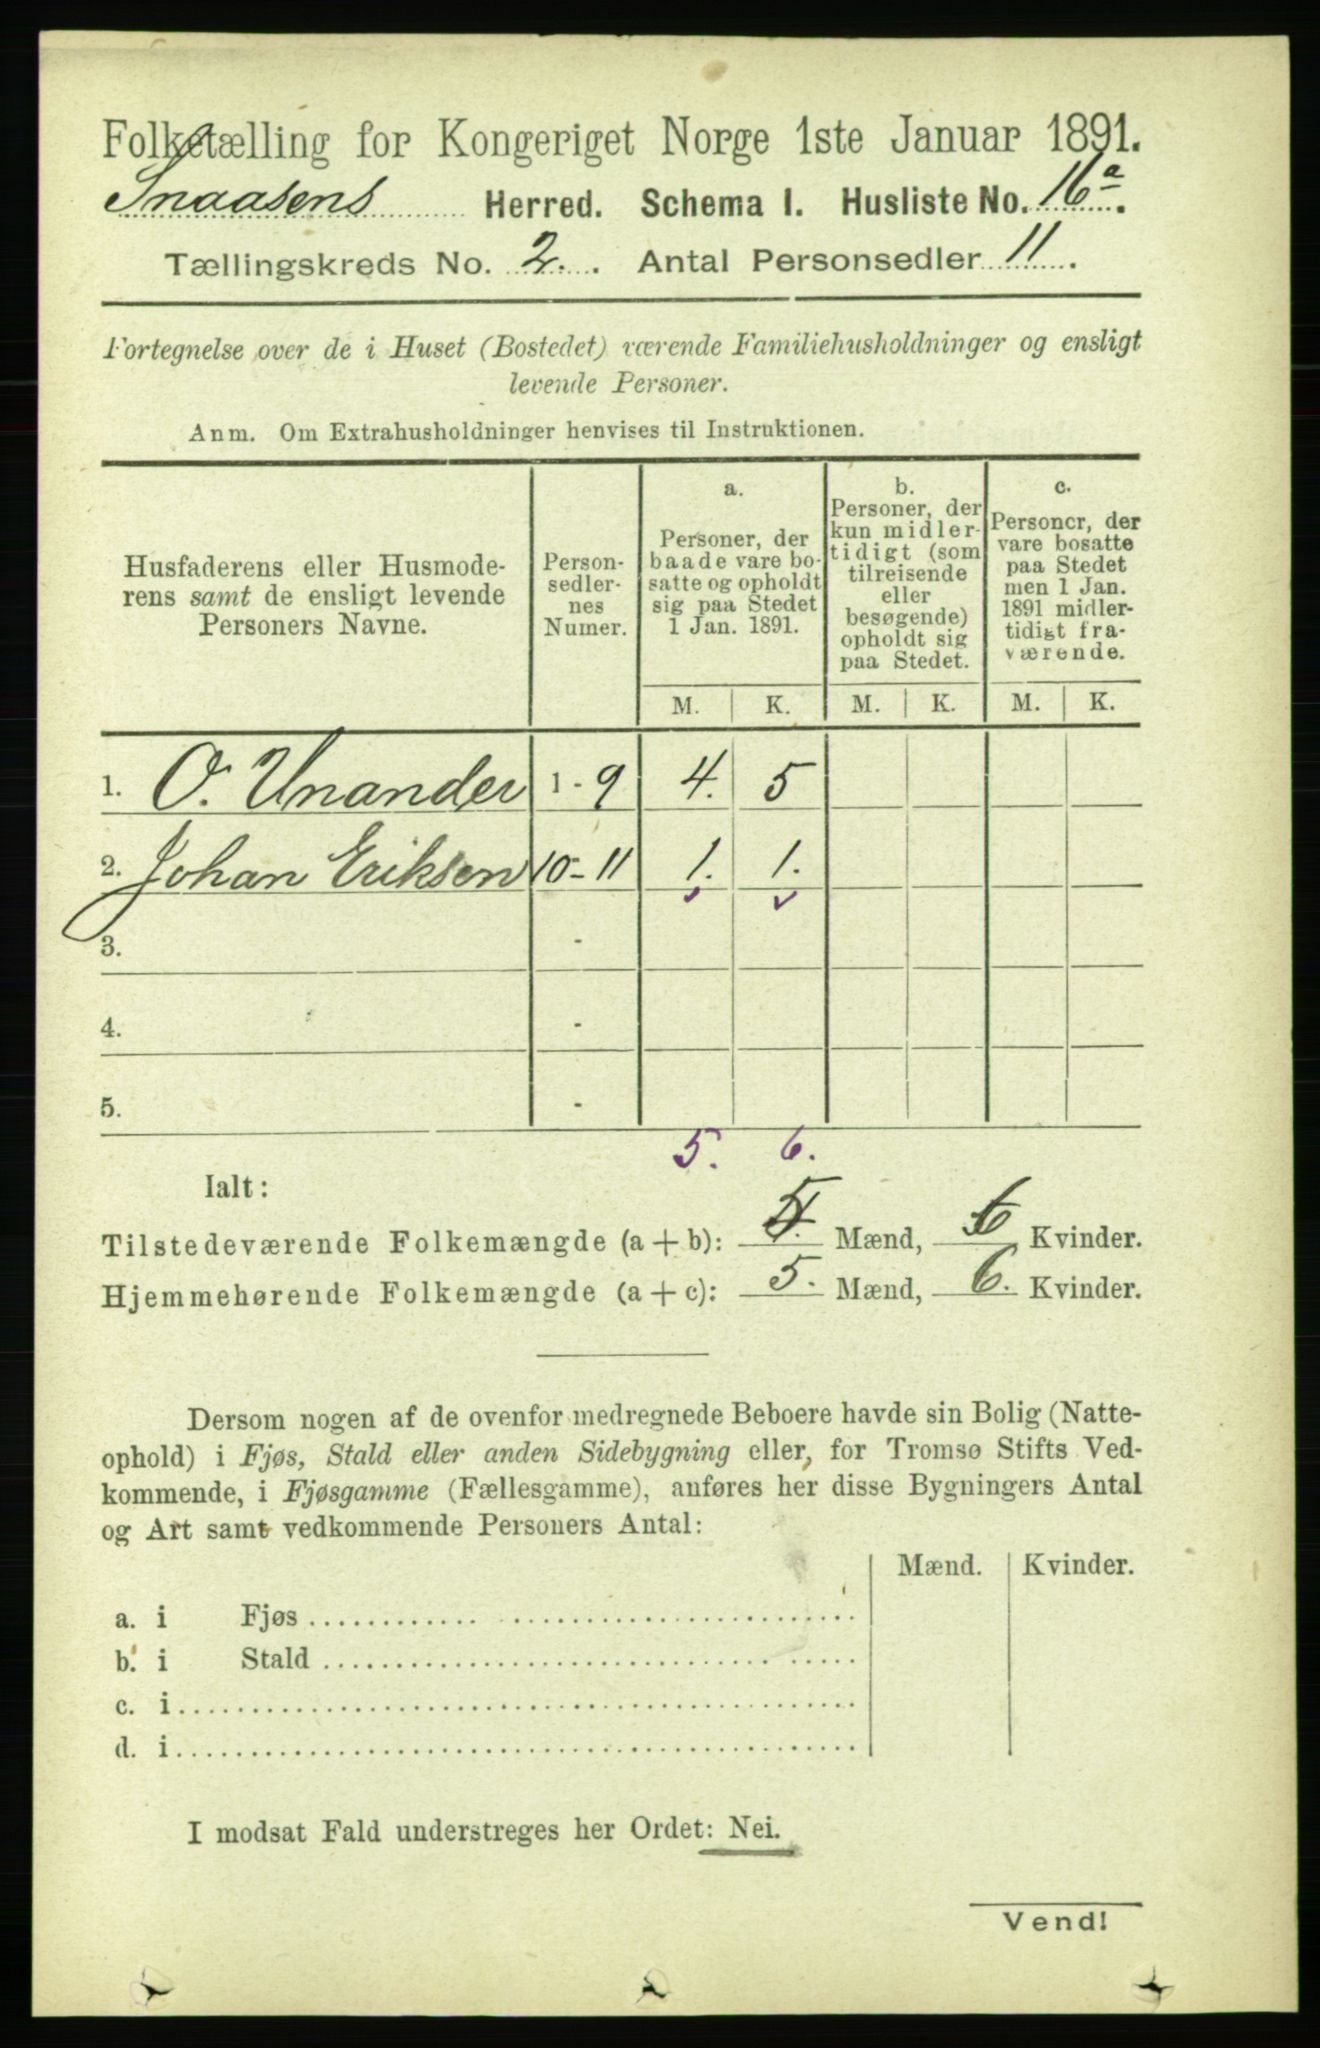 Folketælling for Kongeriget Norge 1ste Januar 1891.
Snaasens Herred. Schema I. Husliste No. 16a.
Tællingskreds No. 2. Antal Personsedler 11.
Fortegnelse over de i Huset (Bostedet) værende Familiehusholdninger og ensligt
levende Personer.
Anm. Om Extrahusholdninger henvises til Instruktionen.
Husfaderens eller Husmode-
rens samt de ensligt levende
Personers Navne.
Person-
sedler-
nes
Numer.
a.
Personer, der
baade vare bo-
satte og opholdt
sig paa Stedet
1 Jan. 1891.
b.
Personer, der
kun midler-
tidigt (som
tilreisende
eller
besøgende)
opholdt sig
paa Stedet.
c.
Personer, der
vare bosatte
paa Stedet
men 1 Jan.
1891 midler-
tidigt fra-
værende.
M. K. M. K. M. K.
1. O. Unander 1 - 9 4. 5
2. Johan Eriksen 10 - 11 1. 1.
3. -
4. -
5. -
5. 6.
Ialt:
Tilstedeværende Folkemængde (a + b): 5. Mænd, 6 Kvinder.
Hjemmehørende Folkemængde (a + c): 5. Mænd, 6. Kvinder.
Dersom nogen af de ovenfor medregnede Beboere havde sin Bolig (Natte-
ophold) i Fjøs, Stald eller anden Sidebygning eller, for Tromsø Stifts Ved-
kommende, i Fjøsgamme (Fællesgamme), anføres her disse Bygningers Antal
og Art samt vedkommende Personers Antal:
Mænd. Kvinder.
a. i Fjøs
b. i Stald
c. i
d. i
I modsat Fald understreges her Ordet: Nei.
Vend!